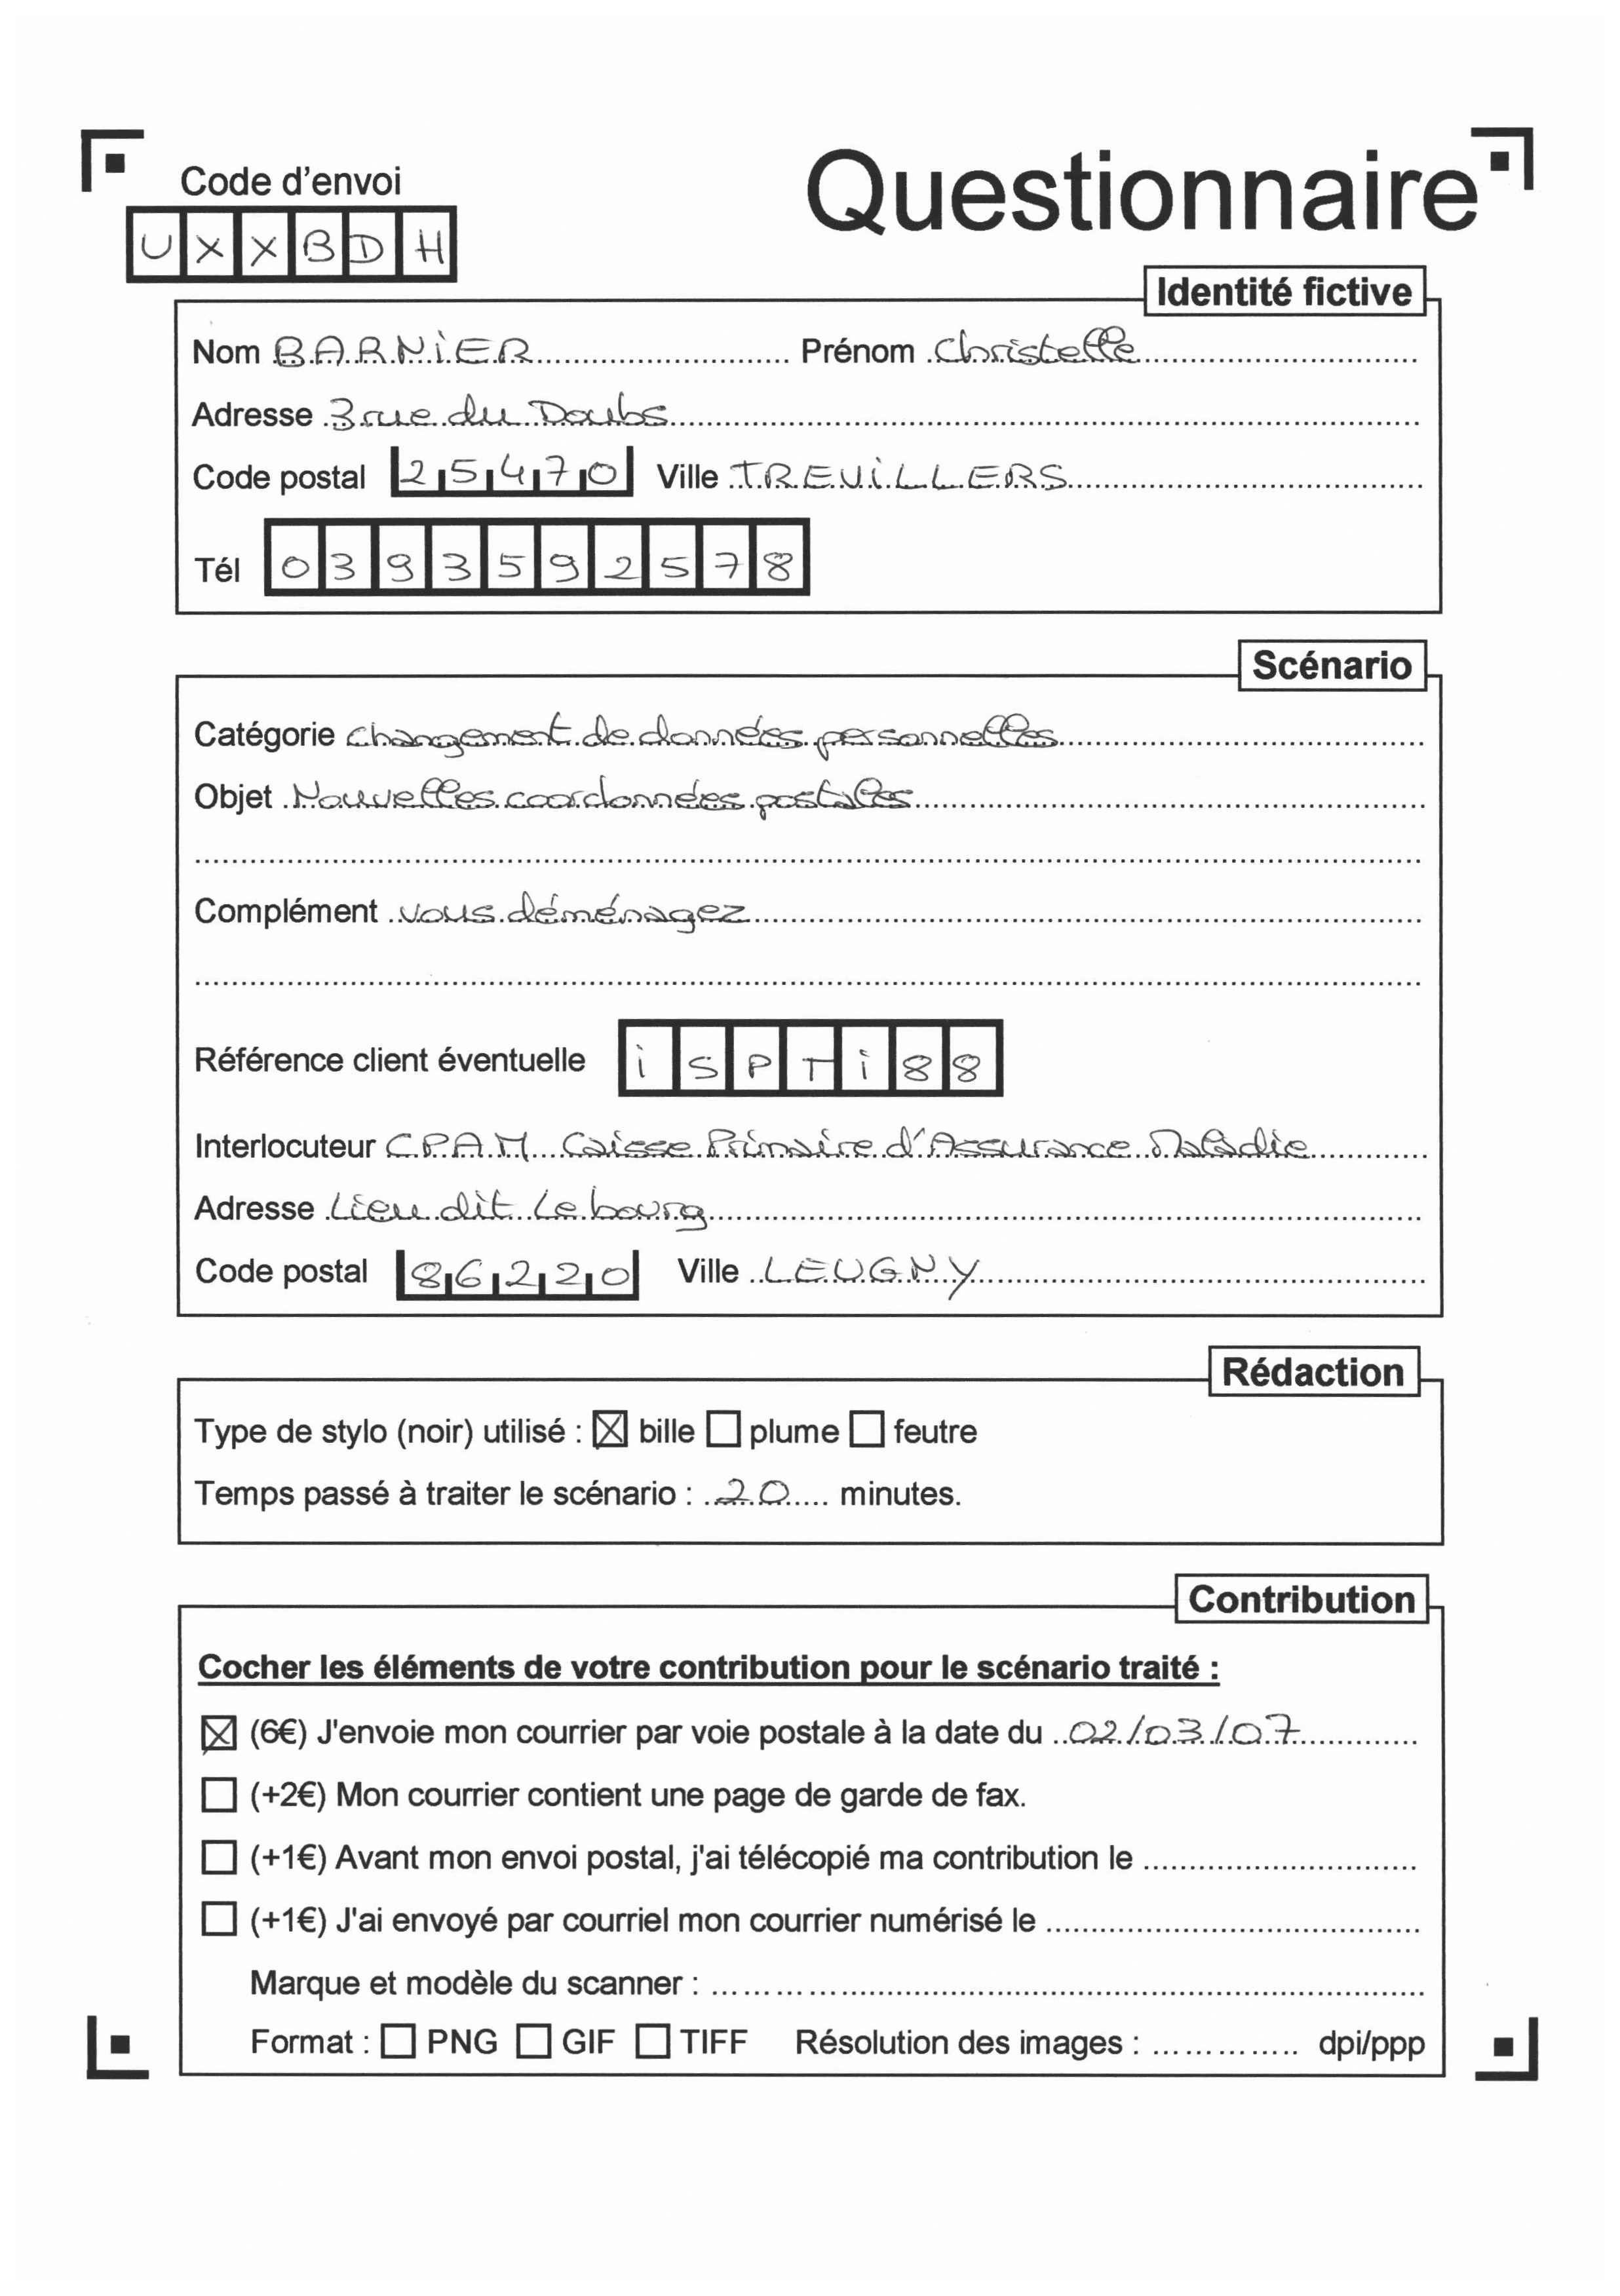 Code d'envoi
Questionnaire
UXXBDH
Identité fictive
Nom BARNIER Prénom Christelle
Adresse 3 rue du Doubs
Code postal 25470 Ville TREVILLERS
Tél 0393592578
Scénario
Catégorie changement de données personnelles
Objet Nouvelles coordonnées postales
Complément vous déménagez
Référence client éventuelle iSPTi88
Interlocuteur C.P.A.M Caisse Primaire d'Assurance Maladie
Adresse Lieu dit Le bourg
Code postal 86220 Ville LEUGNY
Rédaction
Type de stylo (noir) utilisé : ☒ bille ☐ plume ☐ feutre
Temps passé à traiter le scénario : 20 minutes.
Contribution
Cocher les éléments de votre contribution pour le scénario traité :
☒ (6€) J'envoie mon courrier par voie postale à la date du 02/03/07
☐ (+2€) Mon courrier contient une page de garde de fax.
☐ (+1€) Avant mon envoi postal, j'ai télécopié ma contribution le
☐ (+1€) J'ai envoyé par courriel mon courrier numérisé le
Marque et modèle du scanner :
Format : ☐ PNG ☐ GIF ☐ TIFF Résolution des images : dpi/ppp